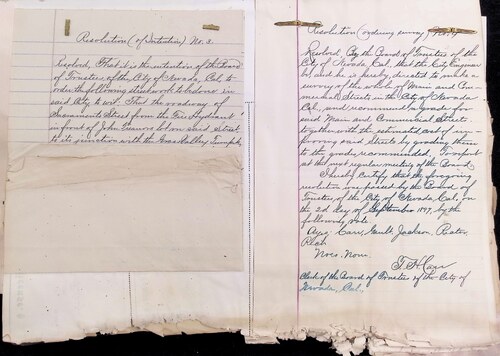 Resolution (of Intention) No. 2.
Resolved, That it is the intention of the Board
of Trustees, of the City of Nevada, Cal, to
order the following street work to be done in
said City to wit: That the roadway of
Sacramento Street from the Fire Hydrant
in front of John house on said Street
to its junction with the Grass Valley Turnpike
Resolution (ordering survey)
Resolved, By the Board of Trustees of the
City of Nevada, Cal, that the City Engineer
be, and he is hereby directed to make a
survey of the whole of Main and Com-
mercial Streets in the City of Nevada
Cal, and recommend grades for
said Main and Commercial Streets
together with the estimated cost of im-
proving said Streets by grading them
to the grades recommended, To report
at the next regular meeting of the Board.
I hereby certify that the foregoing
resolution was passed by the Board of
Trustees of the City of Nevada, Cal, on
the 2d day of September 1897, by the
following vote
Ayes: Carr, Gault, Jackson,
Rich
Noes: None
T. H. Carr
Clerk of the Board of Trustees of the City of
Nevada, Cal.